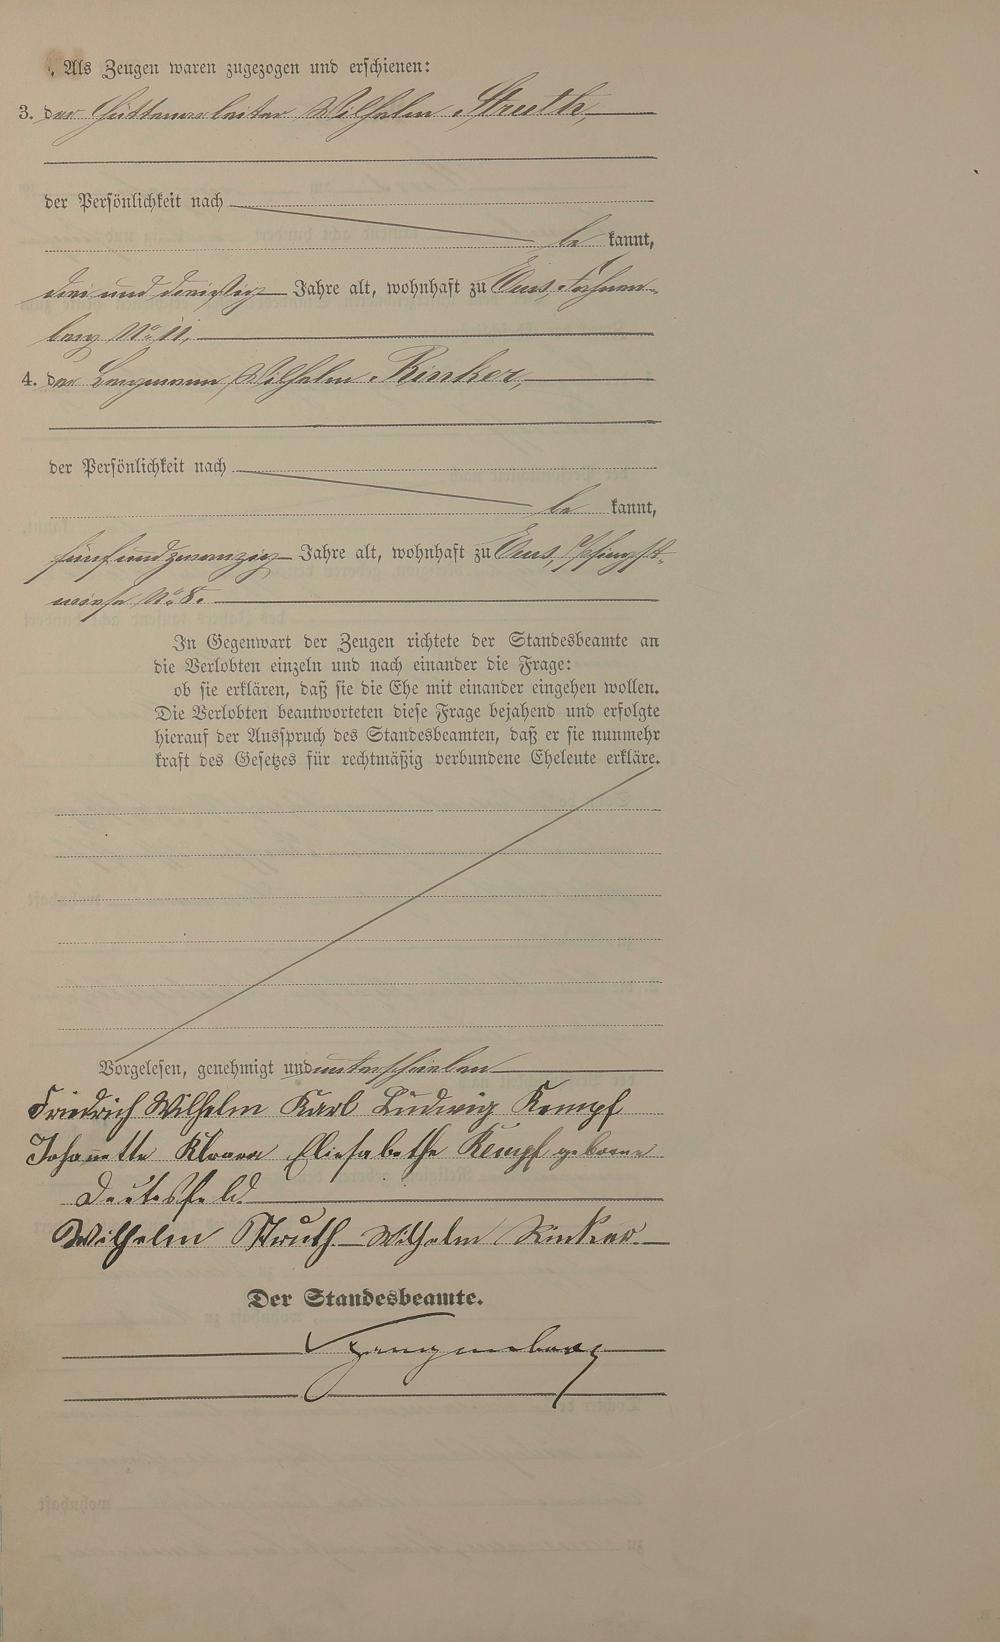 Als Zeugen waren zugezogen und erschienen:
3. der Hüttenarbeiter Wilhelm Struth,
der Persönlichkeit nach
be kannt,
drei und dreißig Jahre alt, wohnhaft zu Ems, Fahnen-
berg No 11,
4. der Bergmann Wilhelm Rinker,
der Persönlichkeit nach
be kannt,
fünf und zwanzig Jahre alt, wohnhaft zu Ems, Pfingst-
wiese No 8.
In Gegenwart der Zeugen richtete der Standesbeamte an
die Verlobten einzeln und nach einander die Frage:
ob sie erklären, daß sie die Ehe mit einander eingehen wollen.
Die Verlobten beantworteten diese Frage bejahend und erfolgte
hierauf der Ausspruch des Standesbeamten, daß er sie nunmehr
kraft des Gesetzes für rechtmäßig verbundene Eheleute erkläre.
Vorgelesen, genehmigt und unterschrieben
Friedrich Wilhelm Karl Ludwig Kempf
Johanette Klara Eliesabethe Kempf geborne
Deutesfeld
Wilhelm Struth Wilhelm Rinker
Der Standesbeamte.